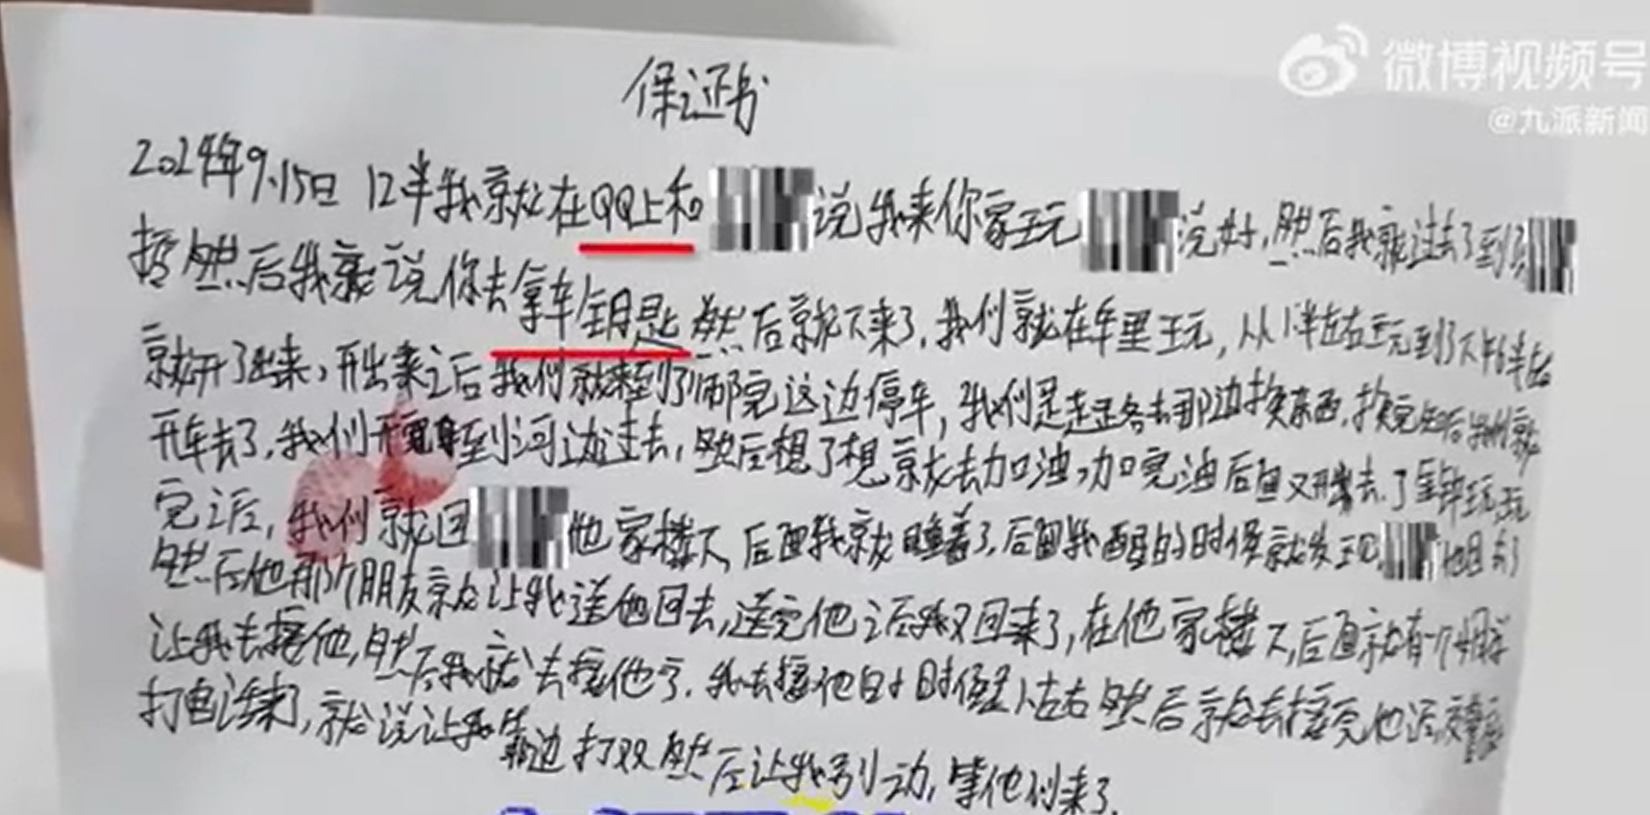 微博视频号
@九派新闻
保证书
2024年9.15日 12半我就在QQ上和 说我来你家玩 说好,然后我就过去了到了
接然后我就说你去拿车钥匙然后就下来了,我们就在车里玩,从1半左右玩到了下午6半左右
就开了出来,开出来之后我们就来到了师院这边停车,我们是走路去那边换东西,换完然后我们就
开车去了,我们开到河边过去,然后想了想就去加油,加完油后面又开去了金钟玩玩
完之后,我们就回 他家楼下,后面我就睡着了,后面我醒的时候就发现 他回去了
然后他那个朋友就让我送他回去,送完他之后我又回来了,在他家楼下,后面就有一个同学
让我去接他,然后我就去接他了,我去接他的时候是 左右然后就去接完他后交警
打电话来了,就说让我靠边打双然后让我别动,等他们来了.